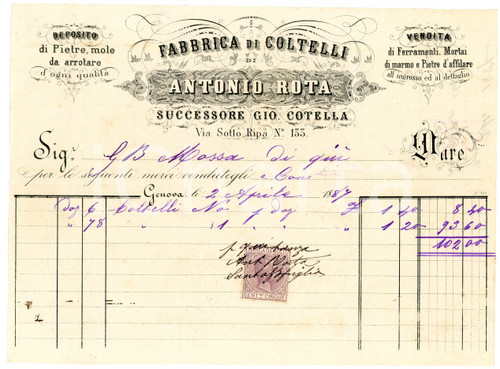 DEPOSITO
di Pietre, mole
da arrotare
d'ogni qualità
FABBRICA DI COLTELLI
DI
ANTONIO ROTA
SUCCESSORE GIO. COTELLA
Via Sotto Ripa No. 133.
VENDITA
di Ferramenti, Mortai
di marmo e Pietre d'affilare
all'ingrosso ed al dettaglio
Sig. GB Mossa di qui Dare
per le seguenti merci vendutegli a
Genova li 2 Aprile 1887
doz 6 Coltelli No 1 doz £ 1 40 8 40
" 78 " " 1 " " 1 20 93 60
102 00
Ant Rota
CENT. CINQUE